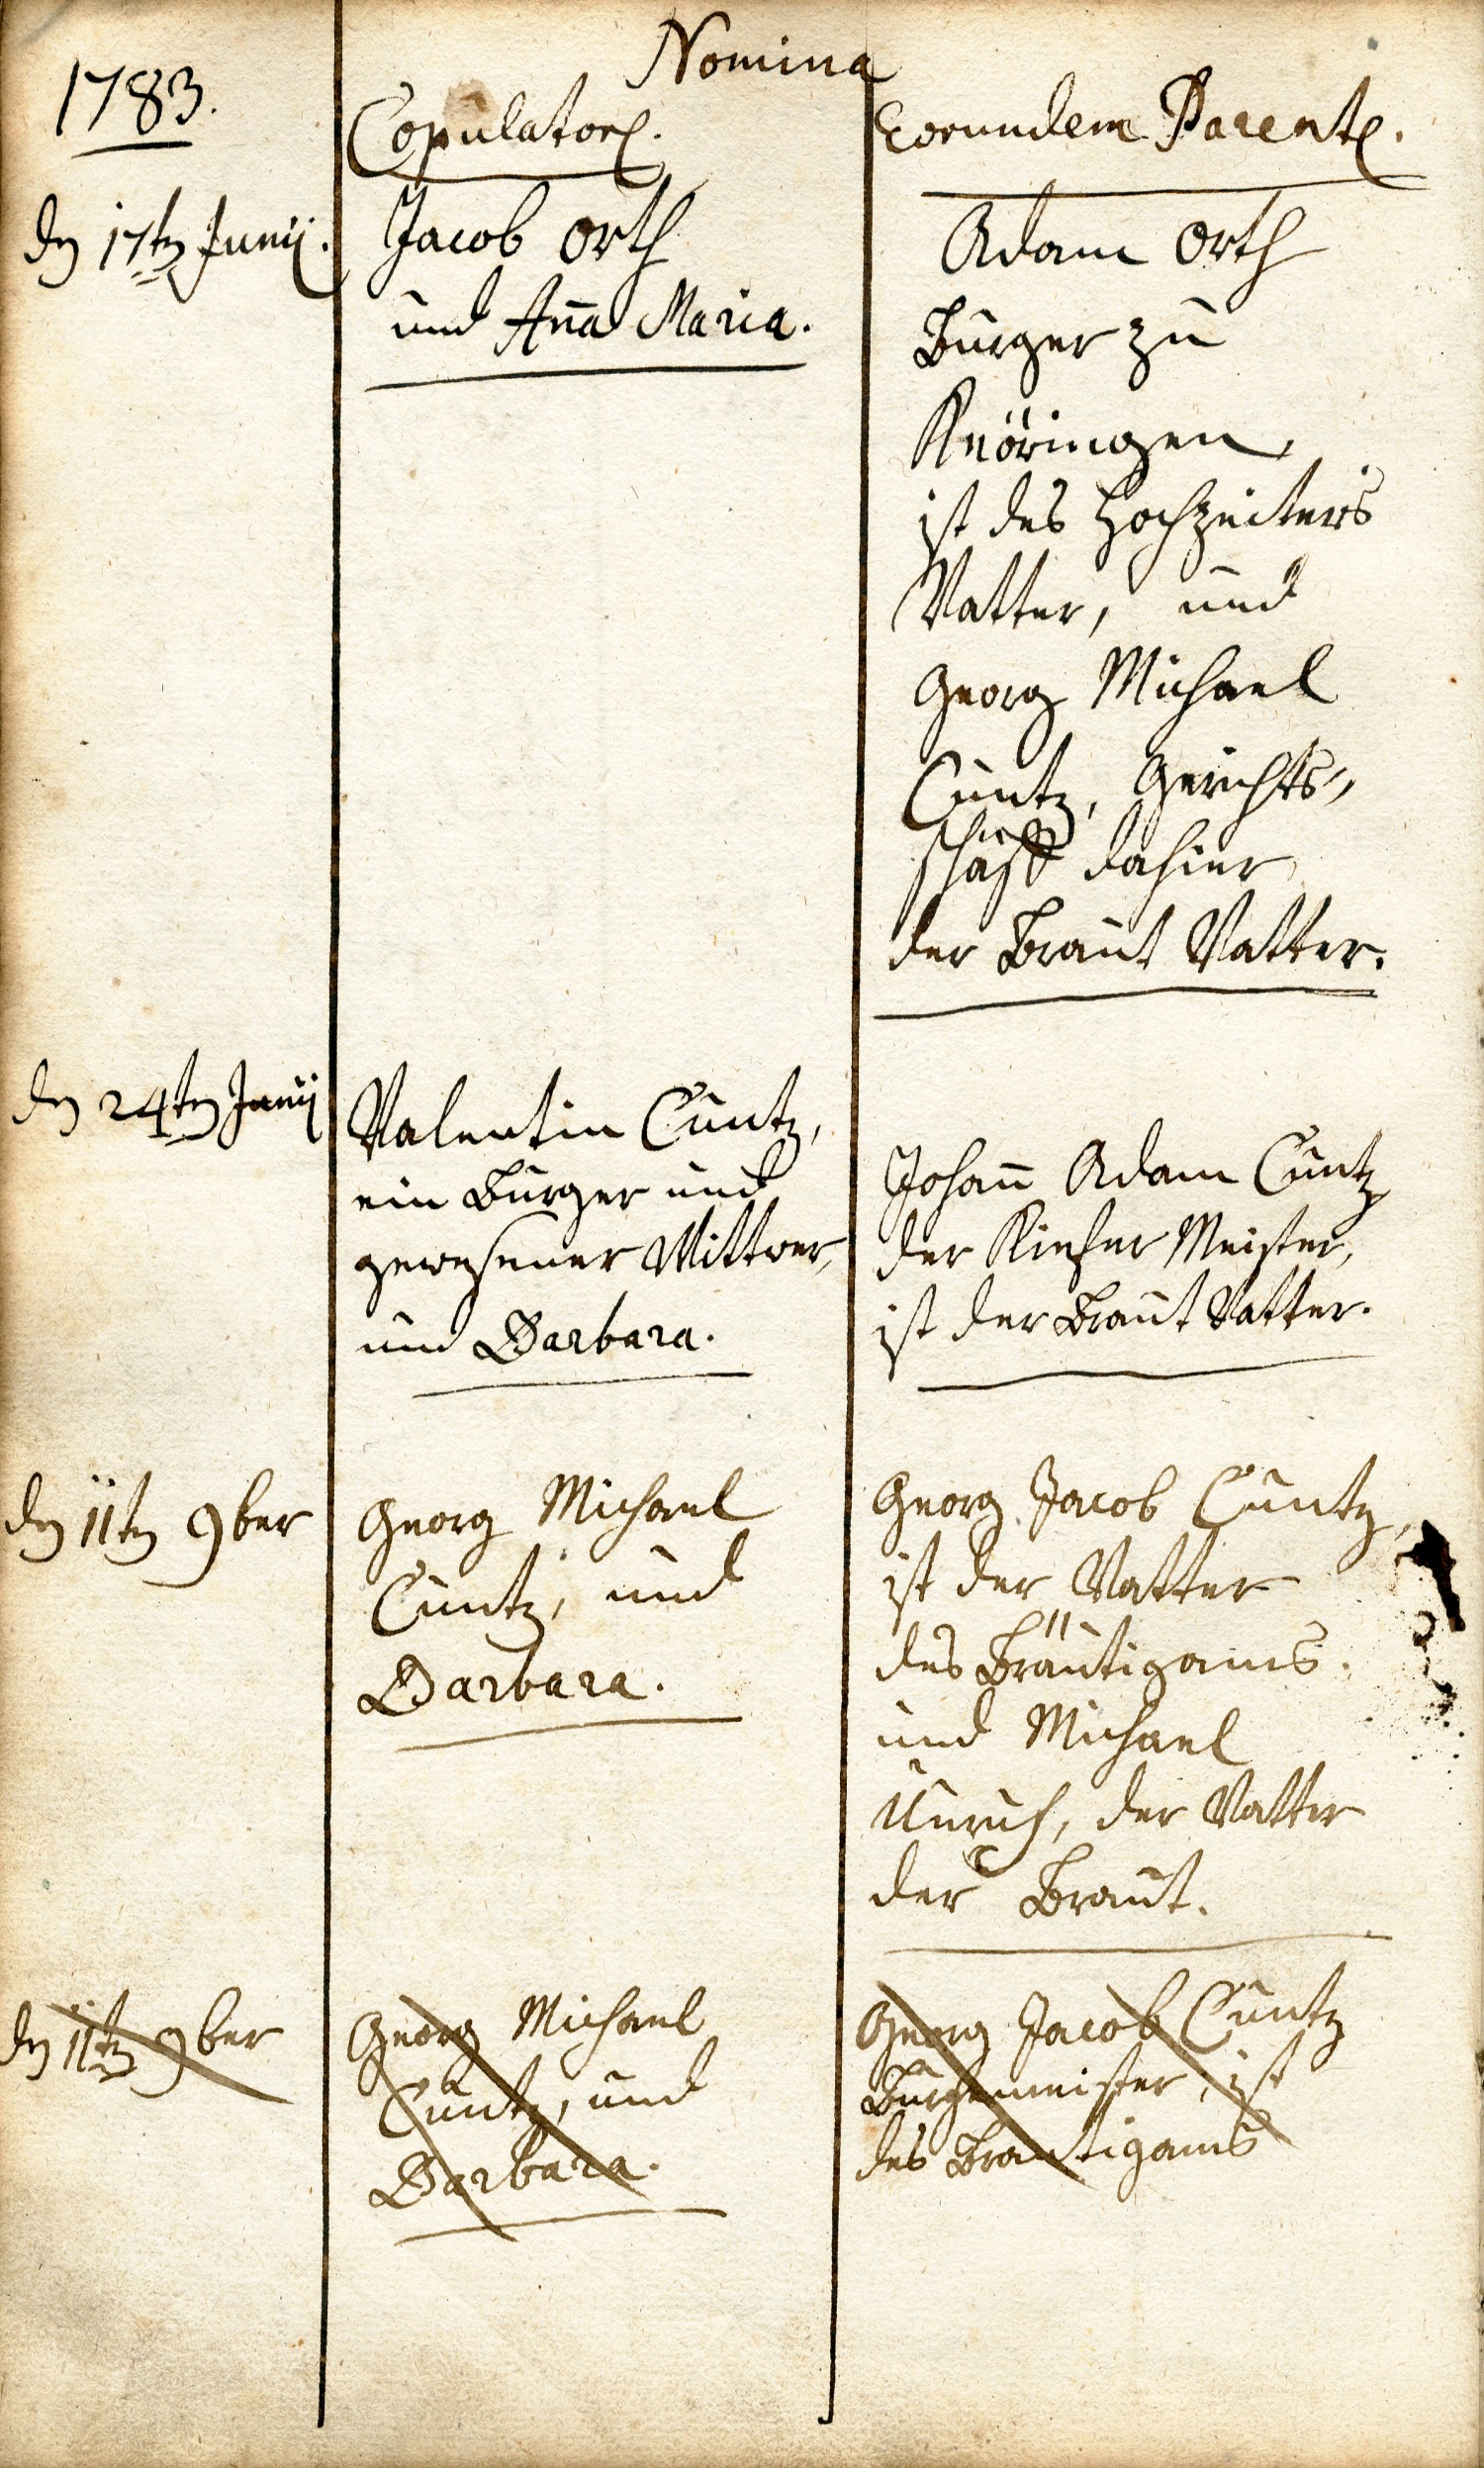 Nomina
1783.
Copulatorʒ.
Eorundem Parentʒ.
dn 17tn Junij.
Jacob Orth
und Ana̅ Maria.
Adam Orth
Burger zu
Knöringen,
ist des Hochzeiters
Vatter, und
Georg Michael
Cuntz, Gerichts„
schäff dahier
der Braut Vatter.
dn 24tn Junij
Valentin Cuntz,
ein Burger und
gewesener Wittwer,
und Barbara.
Johan̅ Adam Cuntz
der Kiefer Meister,
ist der Braut Vatter.
dn 11tn 9ber
Georg Michael
Cuntz, und
Barbara.
Georg Jacob Cuntz,
ist der Vatter
des Bräutigams.
und Michael
Unruh, der Vatter
der Braut.
dn 11tn 9ber
Georg Michael
Cuntz, und
Barbara.
Georg Jacob Cuntz
Burgermeister, ist
des Brautigams